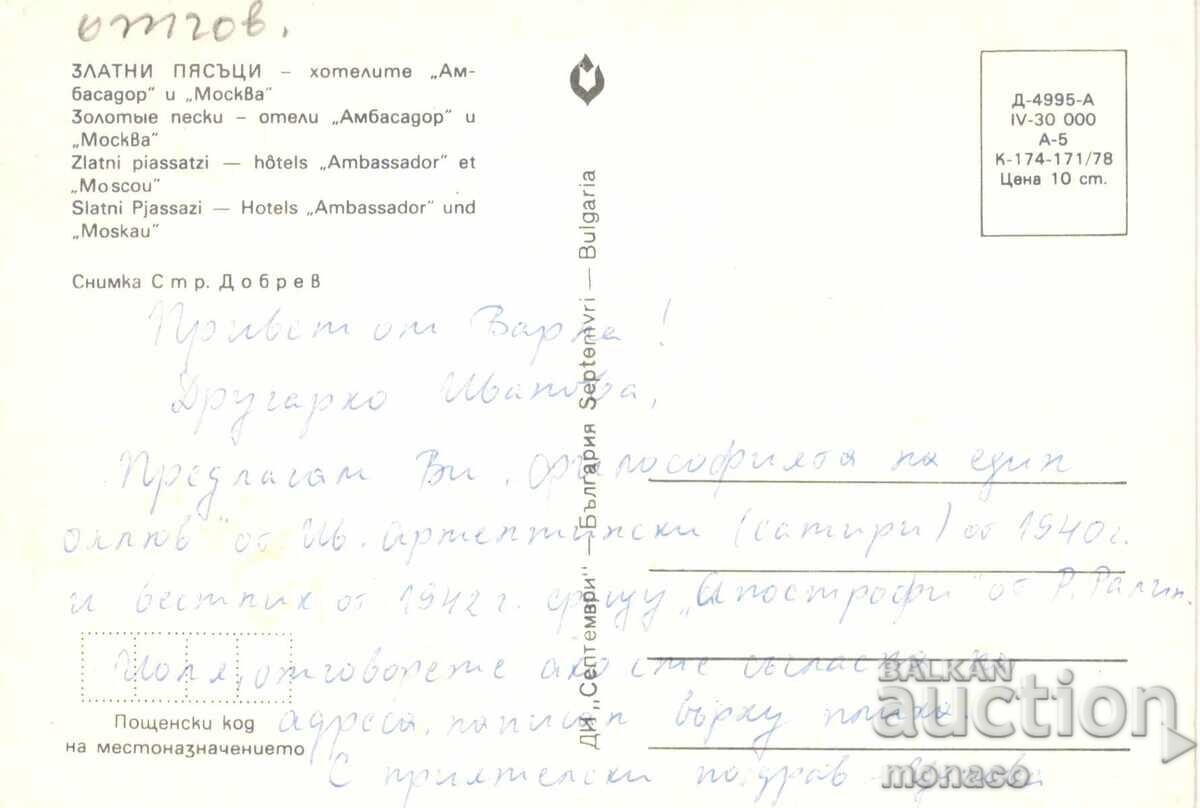 отгов.
ЗЛАТНИ ПЯСЪЦИ – хотелите „Ам-
басадор" и „Москва"
Золотые пески – отели „Амбасадор" и
„Москва"
Zlatni piassatzi — hôtels „Ambassador" et
„Moscou"
Slatni Pjassazi — Hotels „Ambassador" und
„Moskau"
Снимка Стр. Добрев
Д-4995-А
IV-30 000
А-5
К-174-171/78
Цена 10 ст.
ДИ „Септември" — България Septemvri — Bulgaria
Привет от Варна!
Другарко Иванова,
Предлагам Ви на един
от Ив. (сатири) от 1940 г.
и вестник от 1942 г. срещу „Апострофи" от Р. Ралин.
Моля, отговорете ако сте съгласна на
адреса, написан върху плика.
С приятелски поздрав
Пощенски код
на местоназначението
BALKAN
auction
monaco